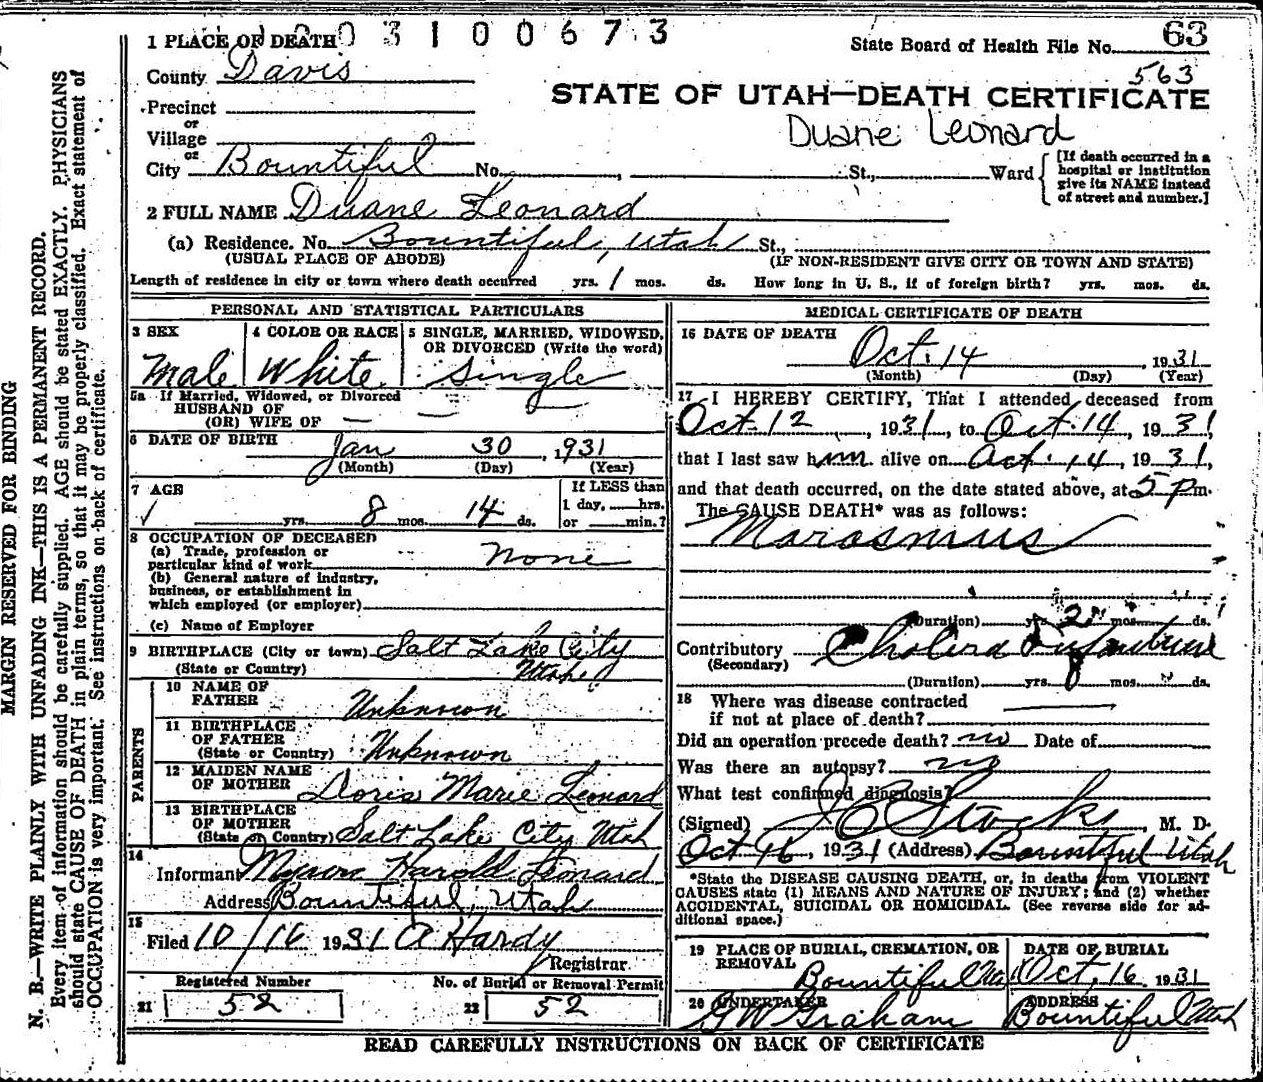 MARGIN RESERVED FOR BINDING
N. B.—WRITE PLAINLY WITH UNFADING INK—THIS IS A PERMANENT RECORD.
Every item of information should be carefully supplied. AGE should be stated EXACTLY. PHYSICIANS
should state CAUSE OF DEATH in plain terms, so that it may be properly classified. Exact statement of
OCCUPATION is very important. See instructions on back of certificate.
0 3 1 0 0 6 7 3
1 PLACE OF DEATH
State Board of Health File No. 63
County Davis
563
STATE OF UTAH—DEATH CERTIFICATE
Precinct
Duane Leonard
or
Village
or
City Bountiful No. , St., Ward
[If death occurred in a
hospital or institution
give its NAME instead
of street and number.]
2 FULL NAME Duane Leonard
(a) Residence. No. Bountiful, Utah St.,
(USUAL PLACE OF ABODE) (IF NON-RESIDENT GIVE CITY OR TOWN AND STATE)
Length of residence in city or town where death occurred yrs. 1 mos. ds. How long in U. S., if of foreign birth? yrs. mos. ds.
PERSONAL AND STATISTICAL PARTICULARS
3 SEX
Male
4 COLOR OR RACE
White
5 SINGLE, MARRIED, WIDOWED,
OR DIVORCED (Write the word)
Single
5a If Married, Widowed, or Divorced
HUSBAND OF
(OR) WIFE OF —
6 DATE OF BIRTH Jan 30, 1931
(Month) (Day) (Year)
7 AGE
yrs. 8 mos. 14 ds.
If LESS than
1 day, hrs.
or min.?
8 OCCUPATION OF DECEASED
(a) Trade, profession or
particular kind of work None
(b) General nature of industry,
business, or establishment in
which employed (or employer)
(c) Name of Employer
9 BIRTHPLACE (City or town) Salt Lake City
(State or Country) Utah
PARENTS
10 NAME OF
FATHER Unknown
11 BIRTHPLACE
OF FATHER
(State or Country) Unknown
12 MAIDEN NAME
OF MOTHER Doris Marie Leonard
13 BIRTHPLACE
OF MOTHER
(State or Country) Salt Lake City Utah
14
Informant Myron Harold Leonard
Address Bountiful, Utah
15
Filed 10/16 1931 A Hardy
Registrar.
Registered Number No. of Burial or Removal Permit
21 52 22 52
MEDICAL CERTIFICATE OF DEATH
16 DATE OF DEATH
Oct. 14 1931
(Month) (Day) (Year)
17 I HEREBY CERTIFY, That I attended deceased from
Oct. 12, 1931, to Oct. 14, 1931,
that I last saw him alive on Oct. 14, 1931,
and that death occurred, on the date stated above, at 5 p m.
The CAUSE DEATH* was as follows:
Marasmus
(Duration) yrs. 2 mos. ds.
Contributory Cholera Infantum
(Secondary)
(Duration) yrs. mos. ds.
18 Where was disease contracted
if not at place of death?
Did an operation precede death? no Date of
Was there an autopsy? no
What test confirmed diagnosis?
(Signed) J C Stocks, M. D.
Oct 16, 1931 (Address) Bountiful Utah
*State the DISEASE CAUSING DEATH, or, in deaths from VIOLENT
CAUSES state (1) MEANS AND NATURE OF INJURY; and (2) whether
ACCIDENTAL, SUICIDAL OR HOMICIDAL. (See reverse side for ad-
ditional space.)
19 PLACE OF BURIAL, CREMATION, OR
REMOVAL
Bountiful Uta
DATE OF BURIAL
Oct. 16 1931
20 UNDERTAKER
G W Graham
ADDRESS
Bountiful Utah
READ CAREFULLY INSTRUCTIONS ON BACK OF CERTIFICATE